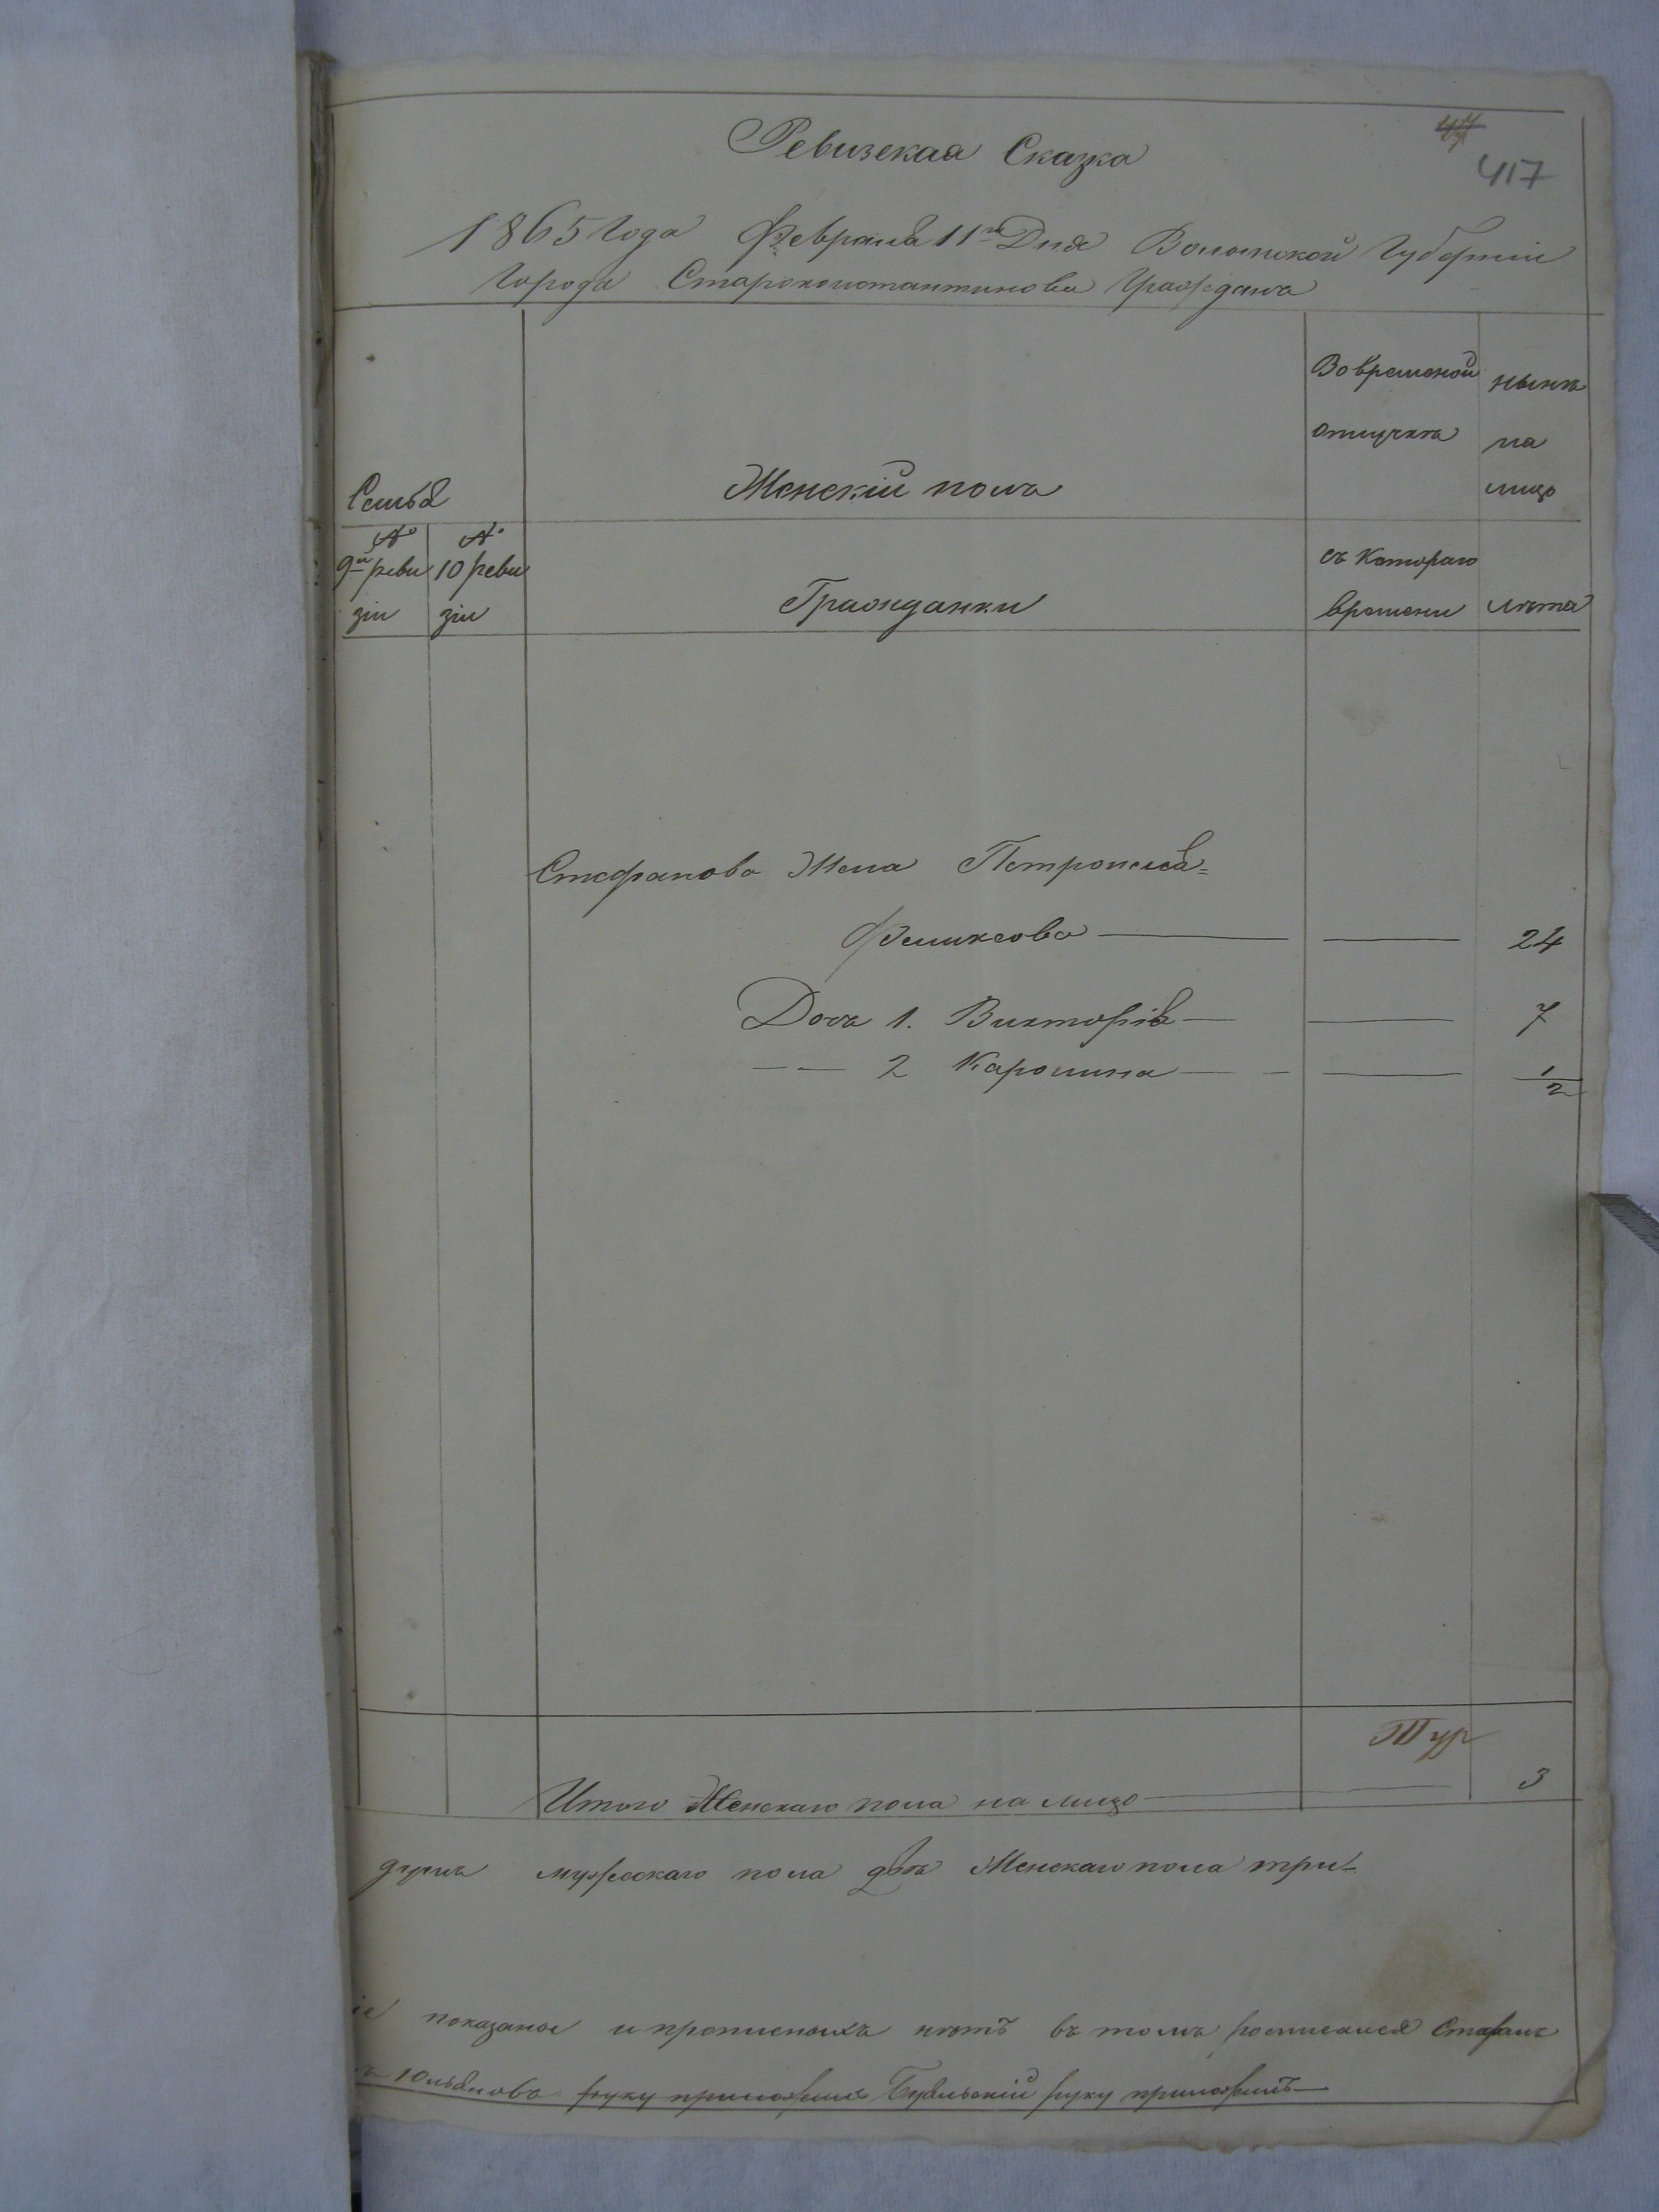 Ревизская Сказка
417
1865 года Февраля 11го Дня Волынской Губерніи
города Староконстантинова Гражданъ
Во временой
отлучкѣ
нынѣ
на
лицо
Семья
Женскій полъ
№
9й реви
зіи
№
10 реви
зіи
Гражданки
съ котораго
времени
лѣта
Стефанова Жена Петронеля
Феликсова 24
Дочь 1. Викторія 7
— — 2 Каролина 1/2
3
Итого Женскаго пола на лицо
душъ мужескаго пола двѣ Женскаго пола три
показаны и прописныхъ нѣтъ въ томъ росписался Стефанъ
Юльяновъ руку приложилъ руку приложилъ